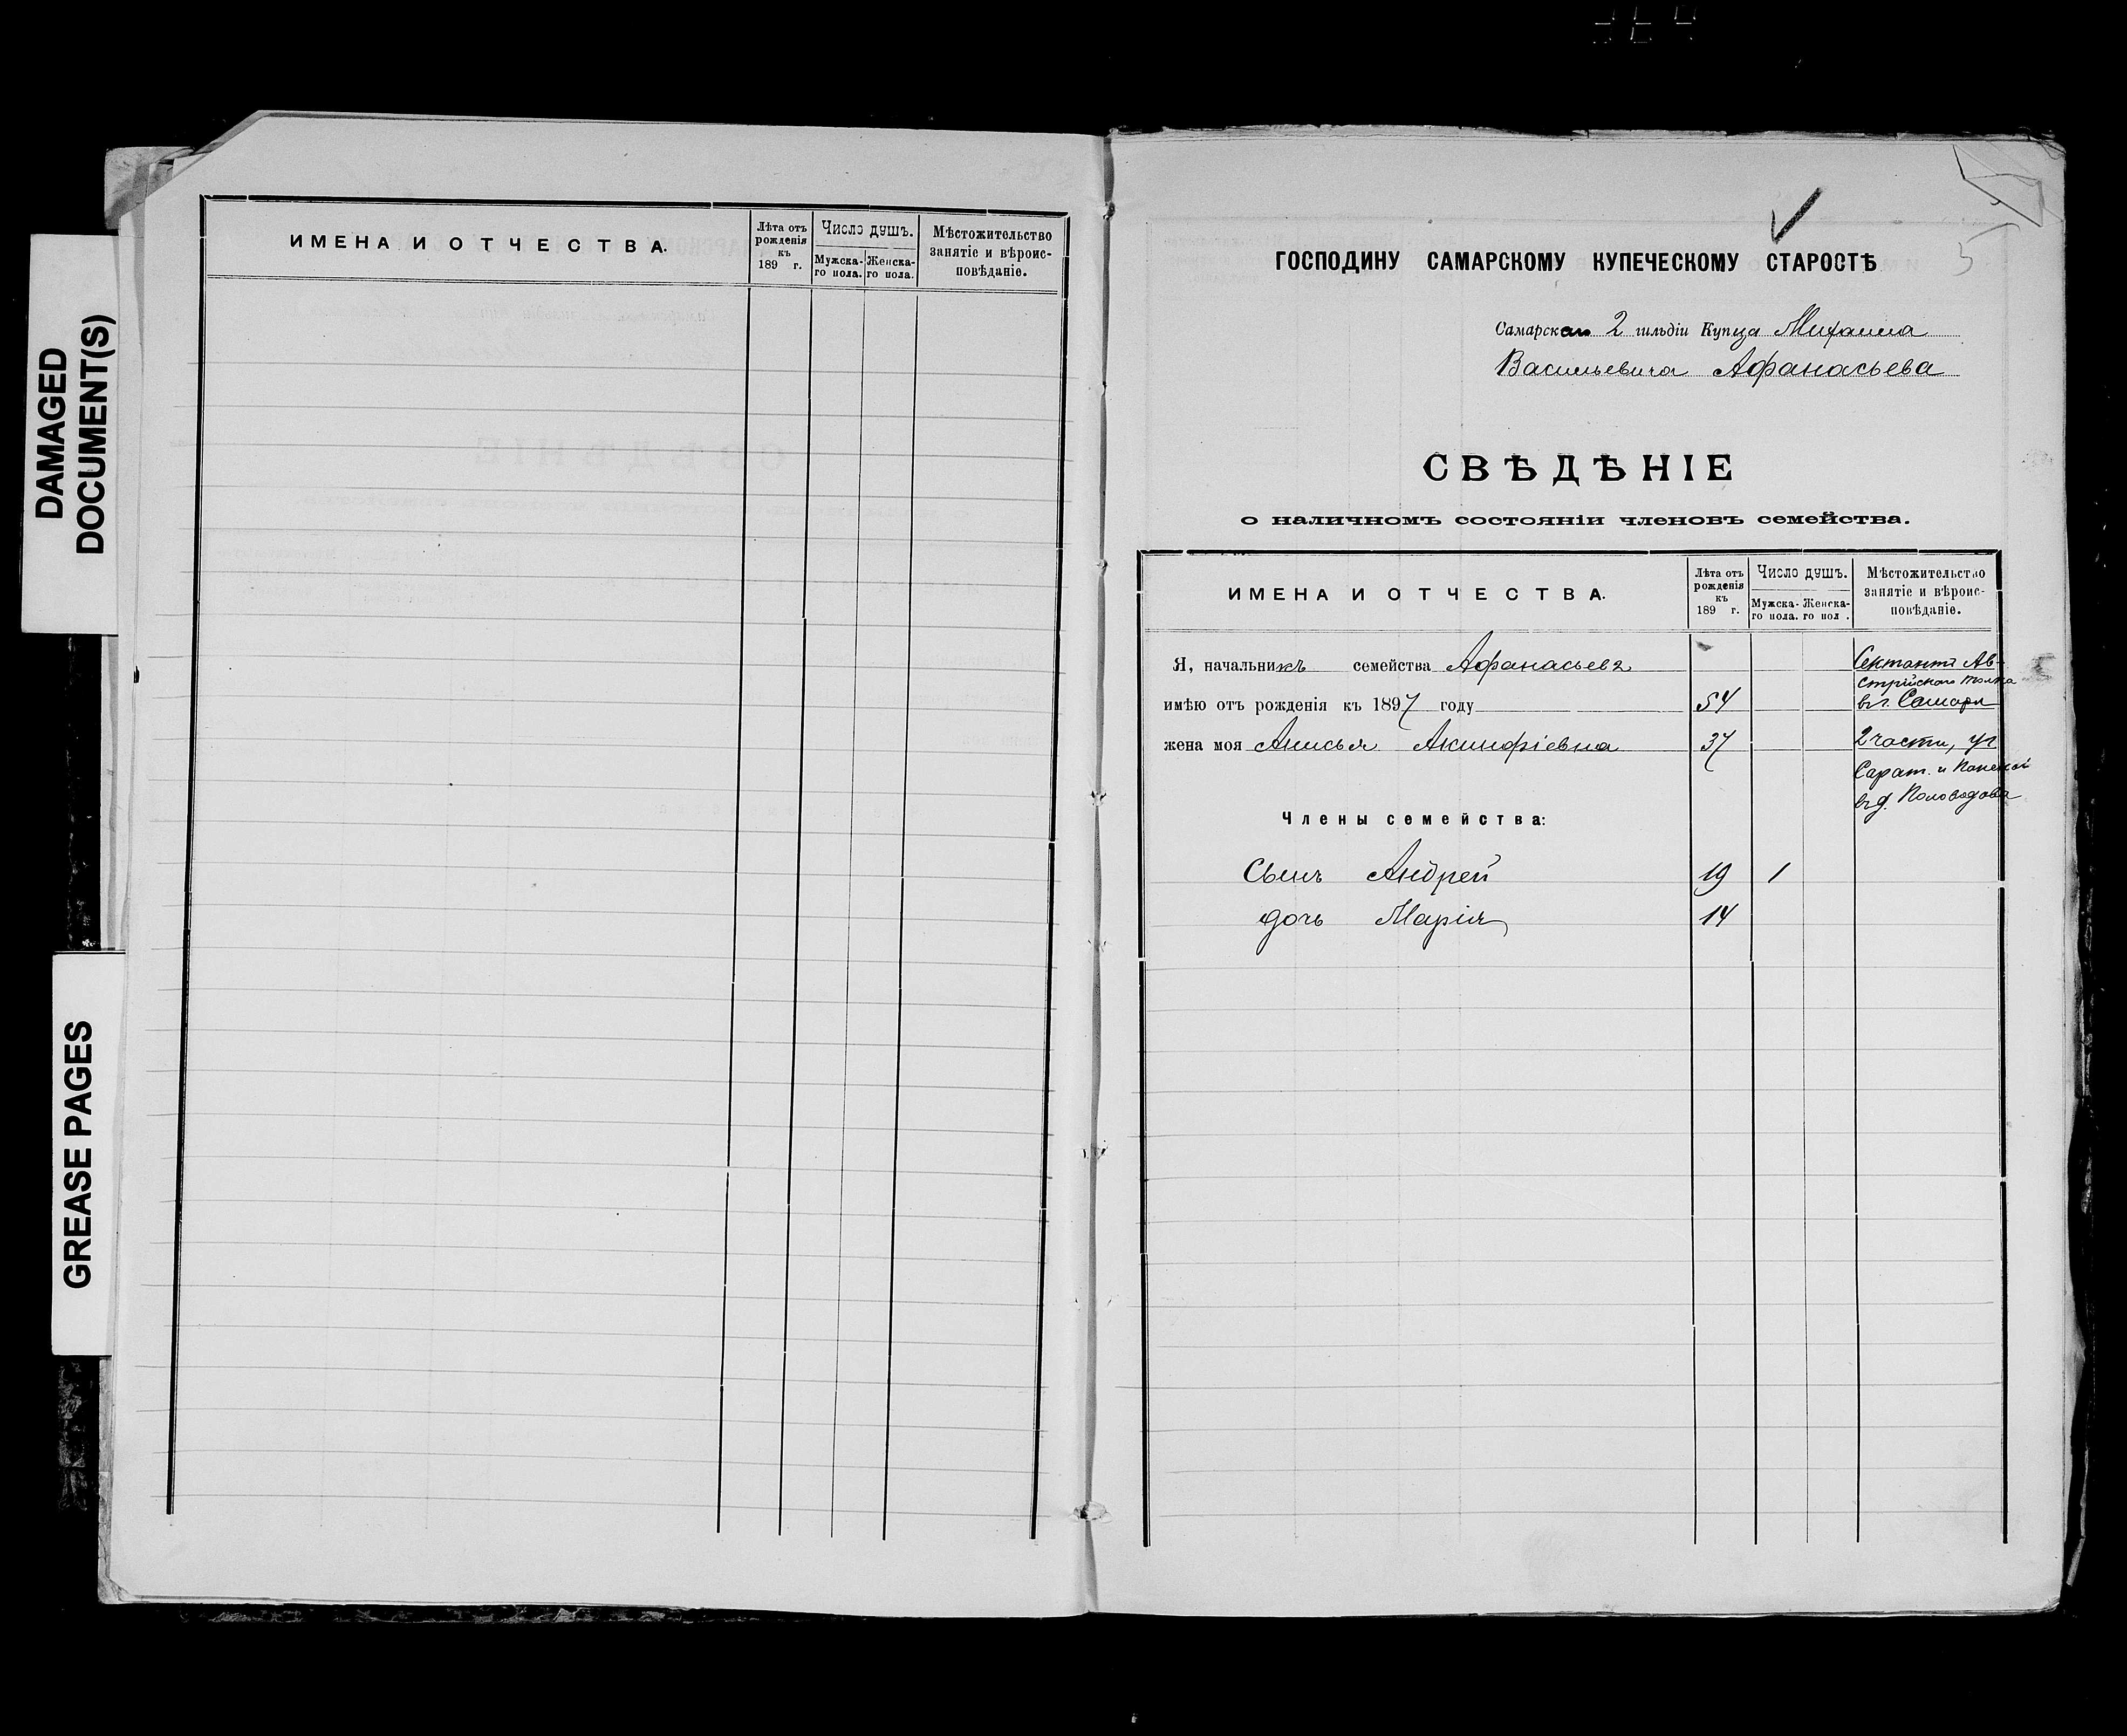 DAMAGED
DOCUMENT(S)
GREASE PAGES
ИМЕНА И ОТЧЕСТВА.
Лѣта отъ
рожденія
къ
189 г.
Число душъ.
Мужска-
го пола.
Женска-
го пола.
Мѣстожительство
занятіе и вѣроис-
повѣданіе.
5
ГОСПОДИНУ САМАРСКОМУ КУПЕЧЕСКОМУ СТАРОСТѢ
Самарскаго 2 гильдіи Купца Михаила
Васильевича Афанасьева
СВѢДѢНІЕ
о наличномъ состояніи членовъ семейства.
ИМЕНА И ОТЧЕСТВА.
Лѣта отъ
рожденія
къ
189 г.
Число душъ.
Мужска-
го пола.
Женска-
го пол .
Мѣстожительство
занятіе и вѣроис-
повѣданіе.
Я, начальникъ семейства Афанасьевъ
имѣю отъ рожденія къ 1897 году 54
жена моя Анисья Акинфіевна 37
Сектантъ Ав-
стрійскаго толка
въ г. Самарѣ
2 части, уг
Сарат. и Панской
въ д. Половодова
Члены семейства:
Сынъ Андрей 19 1
дочь Марія 14